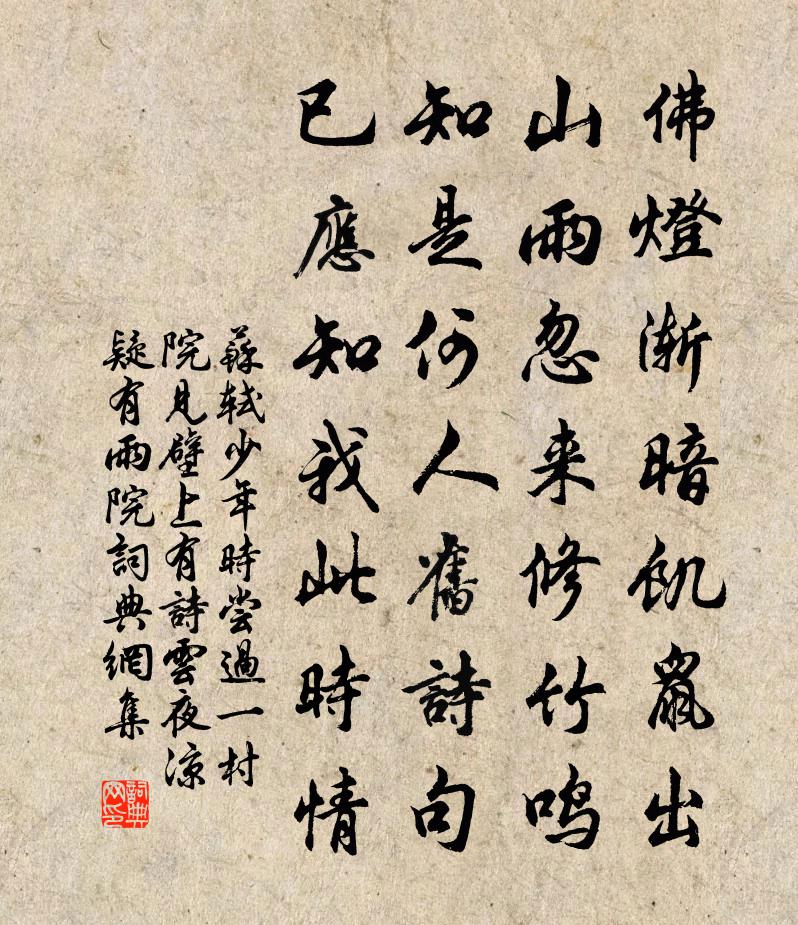 佛燈渐暗飢鼠出
山雨忽来修竹鸣
知是何人舊詩句
已應知我此時情
蘇軾少年時尝過一村
院見壁上有詩雲夜凉
疑有雨院詞典網集
詞典
网印